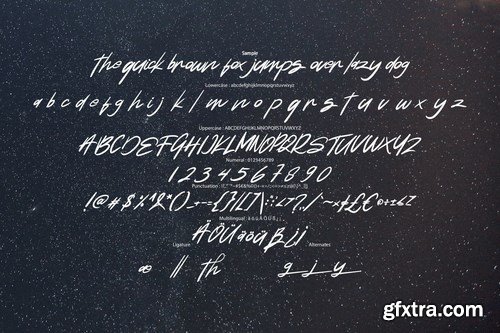 Sample
the quick brown fox jumps over lazy dog
Lowercase : abcdefghijklmnopqrstuvwxyz
a b c d e f g h i j k l m n o p q r s t u v w x y z
Uppercase : ABCDEFGHIJKLMNOPQRSTUVWXYZ
ABCDEFGHIJKLMNOPQRSTUVWXYZ
Numeral : 0123456789
1 2 3 4 5 6 7 8 9 0
Punctuation :
Multilingual : ä ö ü Ä Ö Ü ß ¡ ¿
ÄÖÜäöüß
Ligature Alternates
ll th g j y
gfxtra.com